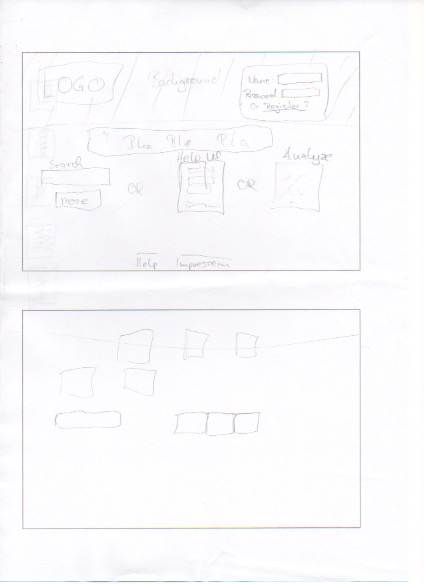 LOGO
Background
Name
Password
Or Register?
Bla Bla Bla
Search
Help us
Analyze
more
OR
OR
Help
Impressum